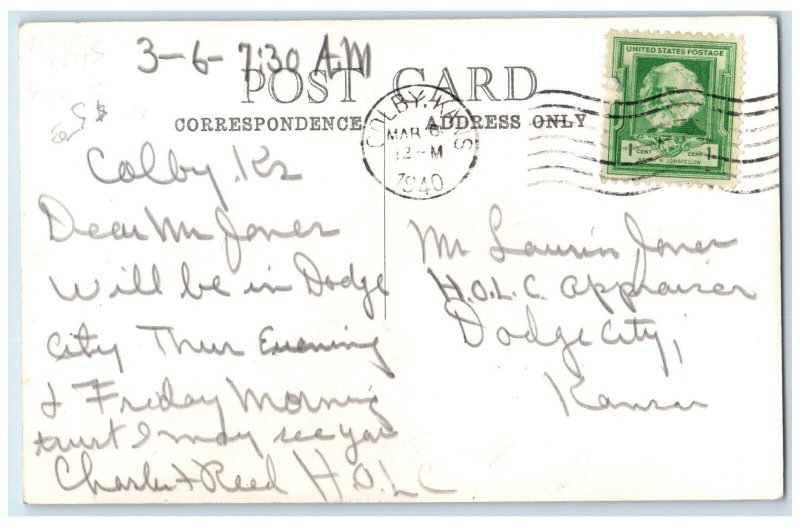 3-6- 7:30 A.M
POST CARD
CORRESPONDENCE ADDRESS ONLY
COLBY, KANS
MAR 6
12-M
1940
UNITED STATES POSTAGE
1 CENT CENT 1
W. LONGFELLOW
Colby, Ks
Dear Mr Jones
Will be in Dodge
City Thur Evening
& Friday Morning
trust I may see you
Charles Reed H.O.L.C
Mr Laurin Jones
H.O.L.C. Appraiser
Dodge City,
Kansas